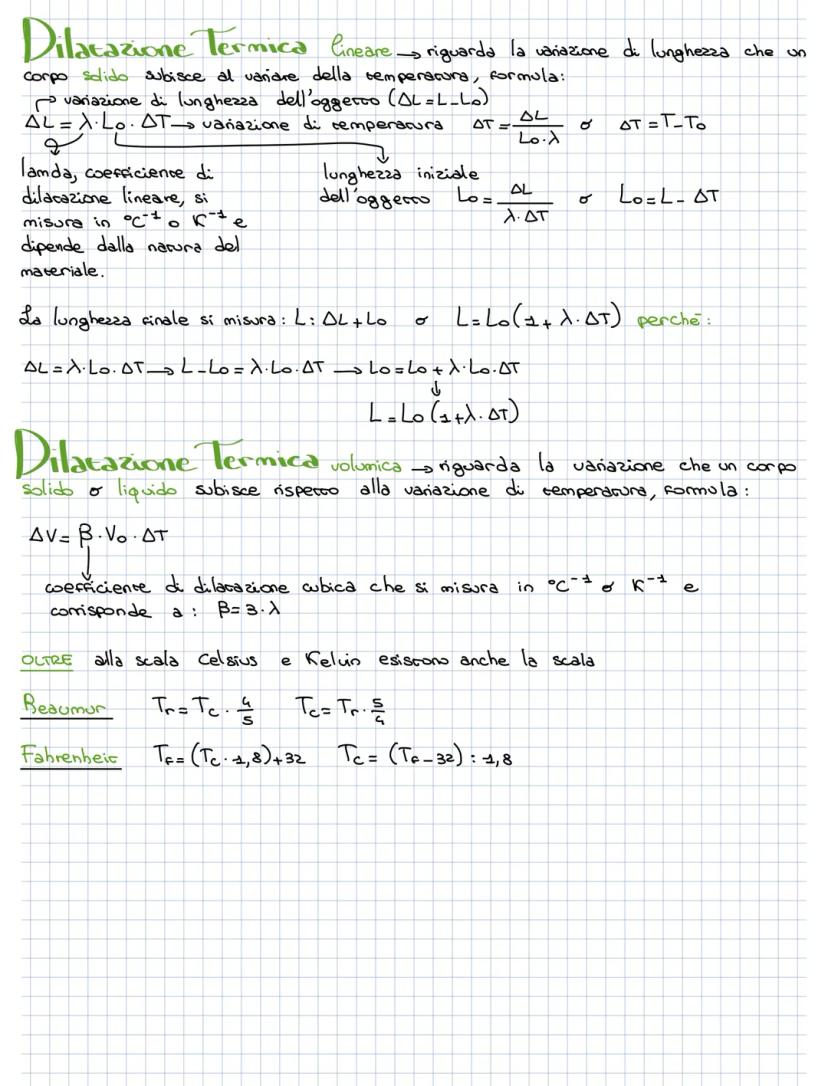 Dilatazione Termica lineare → riguarda la variazione di lunghezza che un
corpo solido subisce al variare della temperatura, formula:
variazione di lunghezza dell'oggetto (ΔL = L-L₀)
ΔL = λ·L₀·ΔT → variazione di temperatura ΔT = ΔL / L₀·λ o ΔT = T-T₀
lamda, coefficiente di
dilatazione lineare, si
misura in °C⁻¹ o K⁻¹ e
dipende dalla natura del
materiale.
lunghezza iniziale
dell'oggetto L₀ = ΔL / λ·ΔT o L₀ = L - ΔT
La lunghezza finale si misura: L: ΔL + L₀ o L = L₀(1 + λ·ΔT) perchē:
ΔL = λ·L₀·ΔT → L-L₀ = λ·L₀·ΔT → L₀ = L₀ + λ·L₀·ΔT
↓
L = L₀(1+λ·ΔT)
Dilatazione Termica volumica → riguarda la variazione che un corpo
solido o liquido subisce rispetto alla variazione di temperatura, formula:
ΔV = β·V₀·ΔT
coefficiente di dilatazione cubica che si misura in °C⁻¹ o K⁻¹ e
corrisponde a: β = 3·λ
OLTRE alla scala Celsius e Kelvin esistono anche la scala
Reaumur Tr = Tc · 4/5 Tc = Tr · 5/4
Fahrenheit Tf = (Tc·1,8)+32 Tc = (Tf-32) : 1,8